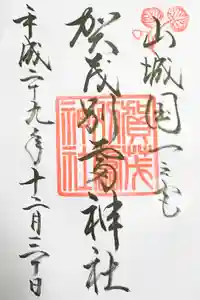 山城国一之宮
賀茂別雷神社
平成二十九年十二月三十日
賀茂神社